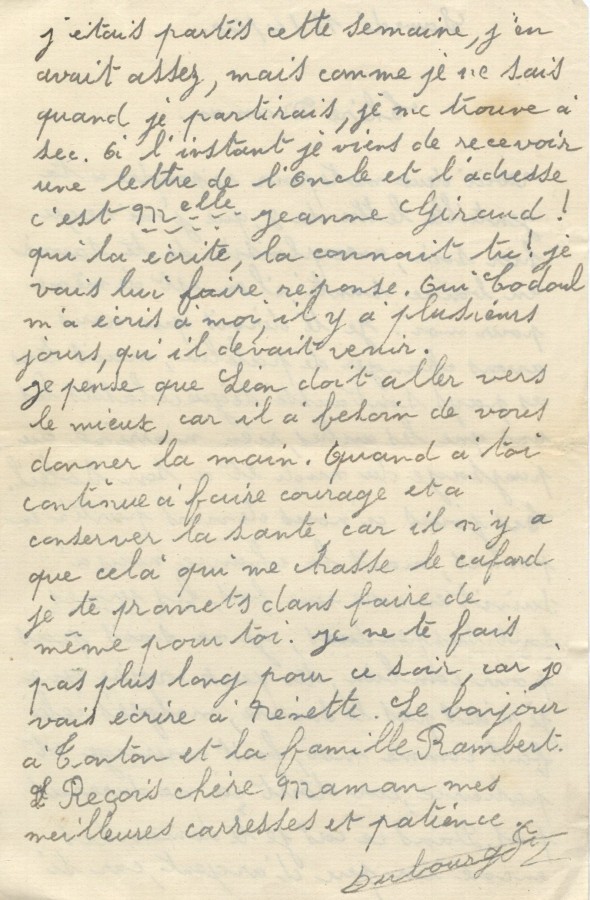 j'etais partis cette semaine, j'en
avait assez, mais comme je ne sais
quand je partirais, je me trouve a
sec. a l'instant je viens de recevoir
une lettre de l'Oncle et l'adresse
c'est Melle Jeanne Giraud!
qui la écrite, la connait tu! je
vais lui faire réponse. Oui Codoul
m'a écris a moi, il y a plusieurs
jours, qu'il devait venir.
Je pense que Léon doit aller vers
le mieux, car il a besoin de vous
donner la main. Quand a toi
continue a faire courage et a
conserver la santé, car il n'y a
que cela qui me chasse le cafard
je te promets dans faire de
même pour toi. Je ne te fais
pas plus long pour ce soir, car je
vais écrire a Nénette. Le bonjour
a Tonton et la famille Rambert.
Reçois chère Maman mes
meilleures carresses et patience.
Dubourg